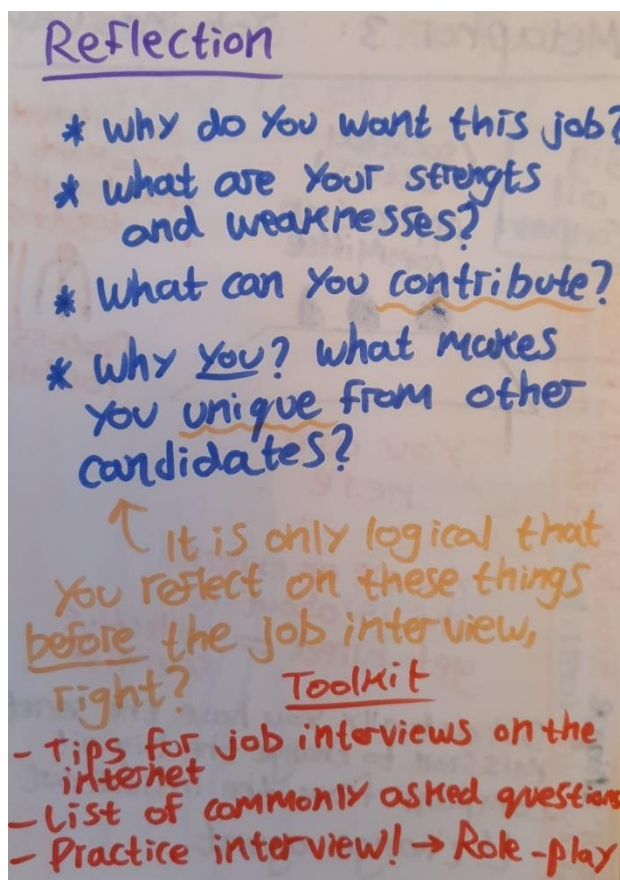 Reflection
* why do you want this job?
* what are your strengts
and weaknesses?
* What can you contribute?
* Why you? what makes
you unique from other
candidates?
↑ It is only logical that
you reflect on these things
before the job interview,
right?
Toolkit
- Tips for job interviews on the
internet
- List of commonly asked questions
- Practice interview! → Role-play